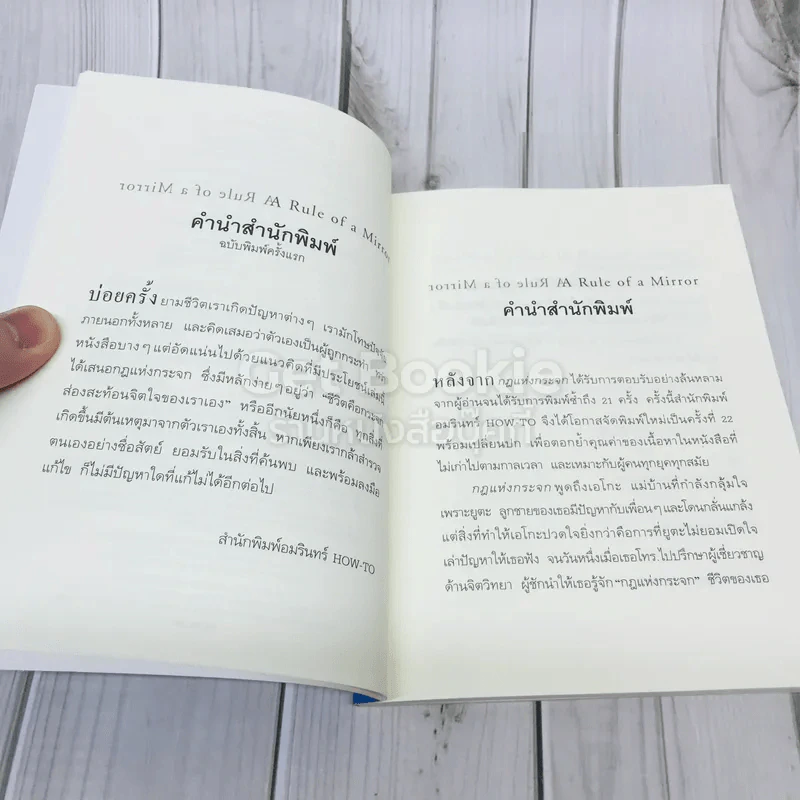 A Rule of a Mirror
คำนำสำนักพิมพ์
ฉบับพิมพ์ครั้งแรก
บ่อยครั้ง ยามชีวิตเราเกิดปัญหาต่างๆ เรามักโทษปัจจัย
ภายนอกทั้งหลาย และคิดเสมอว่าตัวเองเป็นผู้ถูกกระทำ
หนังสือบางๆ แต่อัดแน่นไปด้วยแนวคิดที่มีประโยชน์เล่มนี้
ได้เสนอกฎแห่งกระจก ซึ่งมีหลักง่ายๆ อยู่ว่า “ชีวิตคือกระจก
ส่องสะท้อนจิตใจของเราเอง” หรืออีกนัยหนึ่งก็คือ ทุกสิ่งที่
เกิดขึ้นมีต้นเหตุมาจากตัวเราเองทั้งสิ้น หากเพียงเรากล้าสำรวจ
ตนเองอย่างซื่อสัตย์ ยอมรับในสิ่งที่ค้นพบ และพร้อมลงมือ
แก้ไข ก็ไม่มีปัญหาใดที่แก้ไม่ได้อีกต่อไป
สำนักพิมพ์อมรินทร์ HOW-TO
A Rule of a Mirror
คำนำสำนักพิมพ์
หลังจาก กฎแห่งกระจก ได้รับการตอบรับอย่างล้นหลาม
จากผู้อ่านจนได้รับการพิมพ์ซ้ำถึง 21 ครั้ง ครั้งนี้สำนักพิมพ์
อมรินทร์ HOW-TO จึงได้โอกาสจัดพิมพ์ใหม่เป็นครั้งที่ 22
พร้อมเปลี่ยนปก เพื่อตอกย้ำคุณค่าของเนื้อหาในหนังสือที่
ไม่เก่าไปตามกาลเวลา และเหมาะกับผู้คนทุกยุคทุกสมัย
กฎแห่งกระจก พูดถึงเอโกะ แม่บ้านที่กำลังกลุ้มใจ
เพราะยูตะ ลูกชายของเธอมีปัญหากับเพื่อนๆ และโดนกลั่นแกล้ง
แต่สิ่งที่ทำให้เอโกะปวดใจยิ่งกว่าคือการที่ยูตะไม่ยอมเปิดใจ
เล่าปัญหาให้เธอฟัง จนวันหนึ่งเมื่อเธอโทร.ไปปรึกษาผู้เชี่ยวชาญ
ด้านจิตวิทยา ผู้ชักนำให้เธอรู้จัก “กฎแห่งกระจก” ชีวิตของเธอ
GeoBookie
ร้านหนังสือปุ๊กกี้